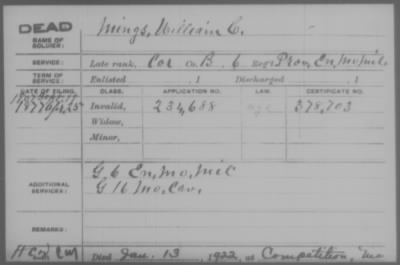 DEAD
NAME OF SOLDIER:
Mings, William C.
SERVICE:
Late rank, Cor Co. B. 6 Reg't Prov. En. Mo. Mil.
TERM OF SERVICE:
Enlisted , 1 Discharged , 1
DATE OF FILING. CLASS. APPLICATION NO. LAW. CERTIFICATE NO.
Invalid, 234,688 378,703
Widow,
Minor,
ADDITIONAL SERVICES:
G. 6 En. Mo. Mil
G 16 Mo. Cav.
REMARKS:
Died Jan. 13, 1922, at Competition, Mo